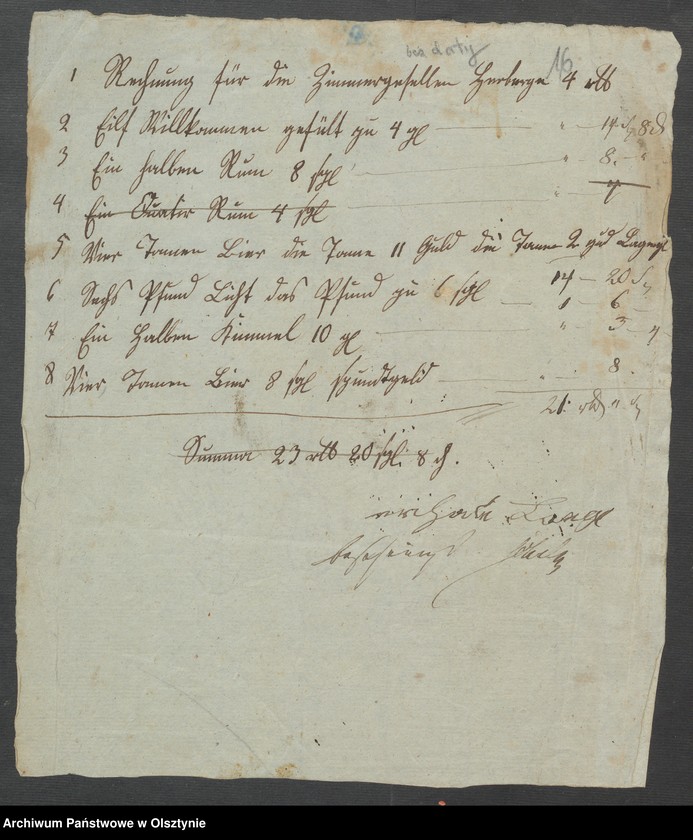 bez daty 16
1 Rechnung für die Zimmergesellen Herberge 4 rtl
2 Eilf Willkommen gefült zu 4 gl — " — 14 sg 8 d
3 Ein halben Rum 8 sgl — " 8. — "
4 Ein Quatir Rum 4 sgl — " 4
5 Vier Tonnen Bier die Tonne 11 Guld die Tonne 2 gld
6 Sechs Pfund Licht das Pfund zu 6 sgl — 14 — 20 sg
7 Ein halben Kümmel 10 gl — " 3 — 4
8 Vier Tonnen Bier 8 sgl spundtgeld — " 8.
21. rtl " sg
Summa 23 rtl 20 sgl. 8 d.
bescheinigt